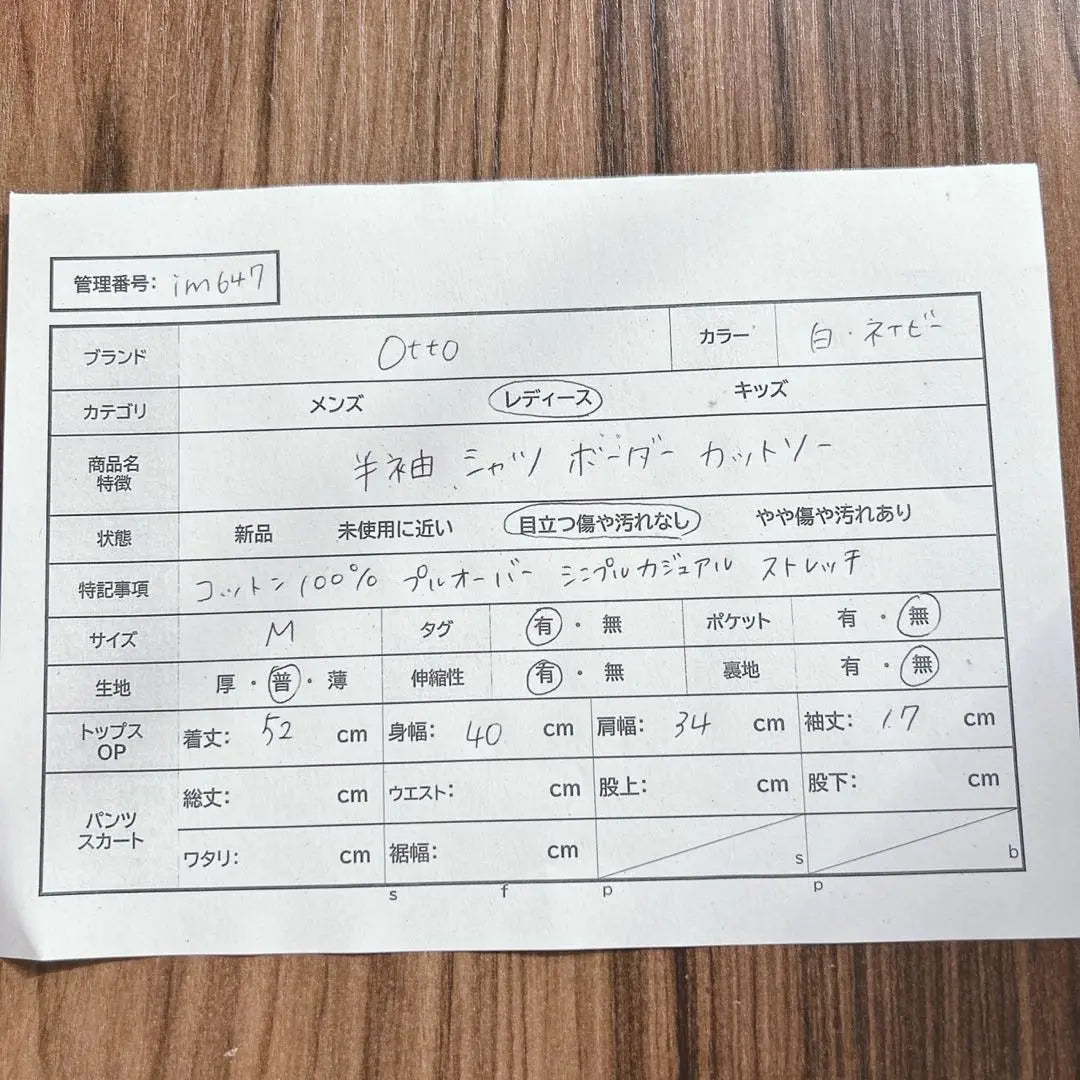 管理番号: im647
ブランド Otto カラー 白・ネイビー
カテゴリ メンズ レディース キッズ
商品名 特徴 半袖 シャツ ボーダー カットソー
状態 新品 未使用に近い 目立つ傷や汚れなし やや傷や汚れあり
特記事項 コットン100% プルオーバー シンプルカジュアル ストレッチ
サイズ M タグ 有・無 ポケット 有・無
生地 厚・普・薄 伸縮性 有・無 裏地 有・無
トップス OP 着丈: 52 cm 身幅: 40 cm 肩幅: 34 cm 袖丈: 17 cm
パンツ スカート 総丈: cm ウエスト: cm 股上: cm 股下: cm
ワタリ: cm 裾幅: cm s b
s f p p